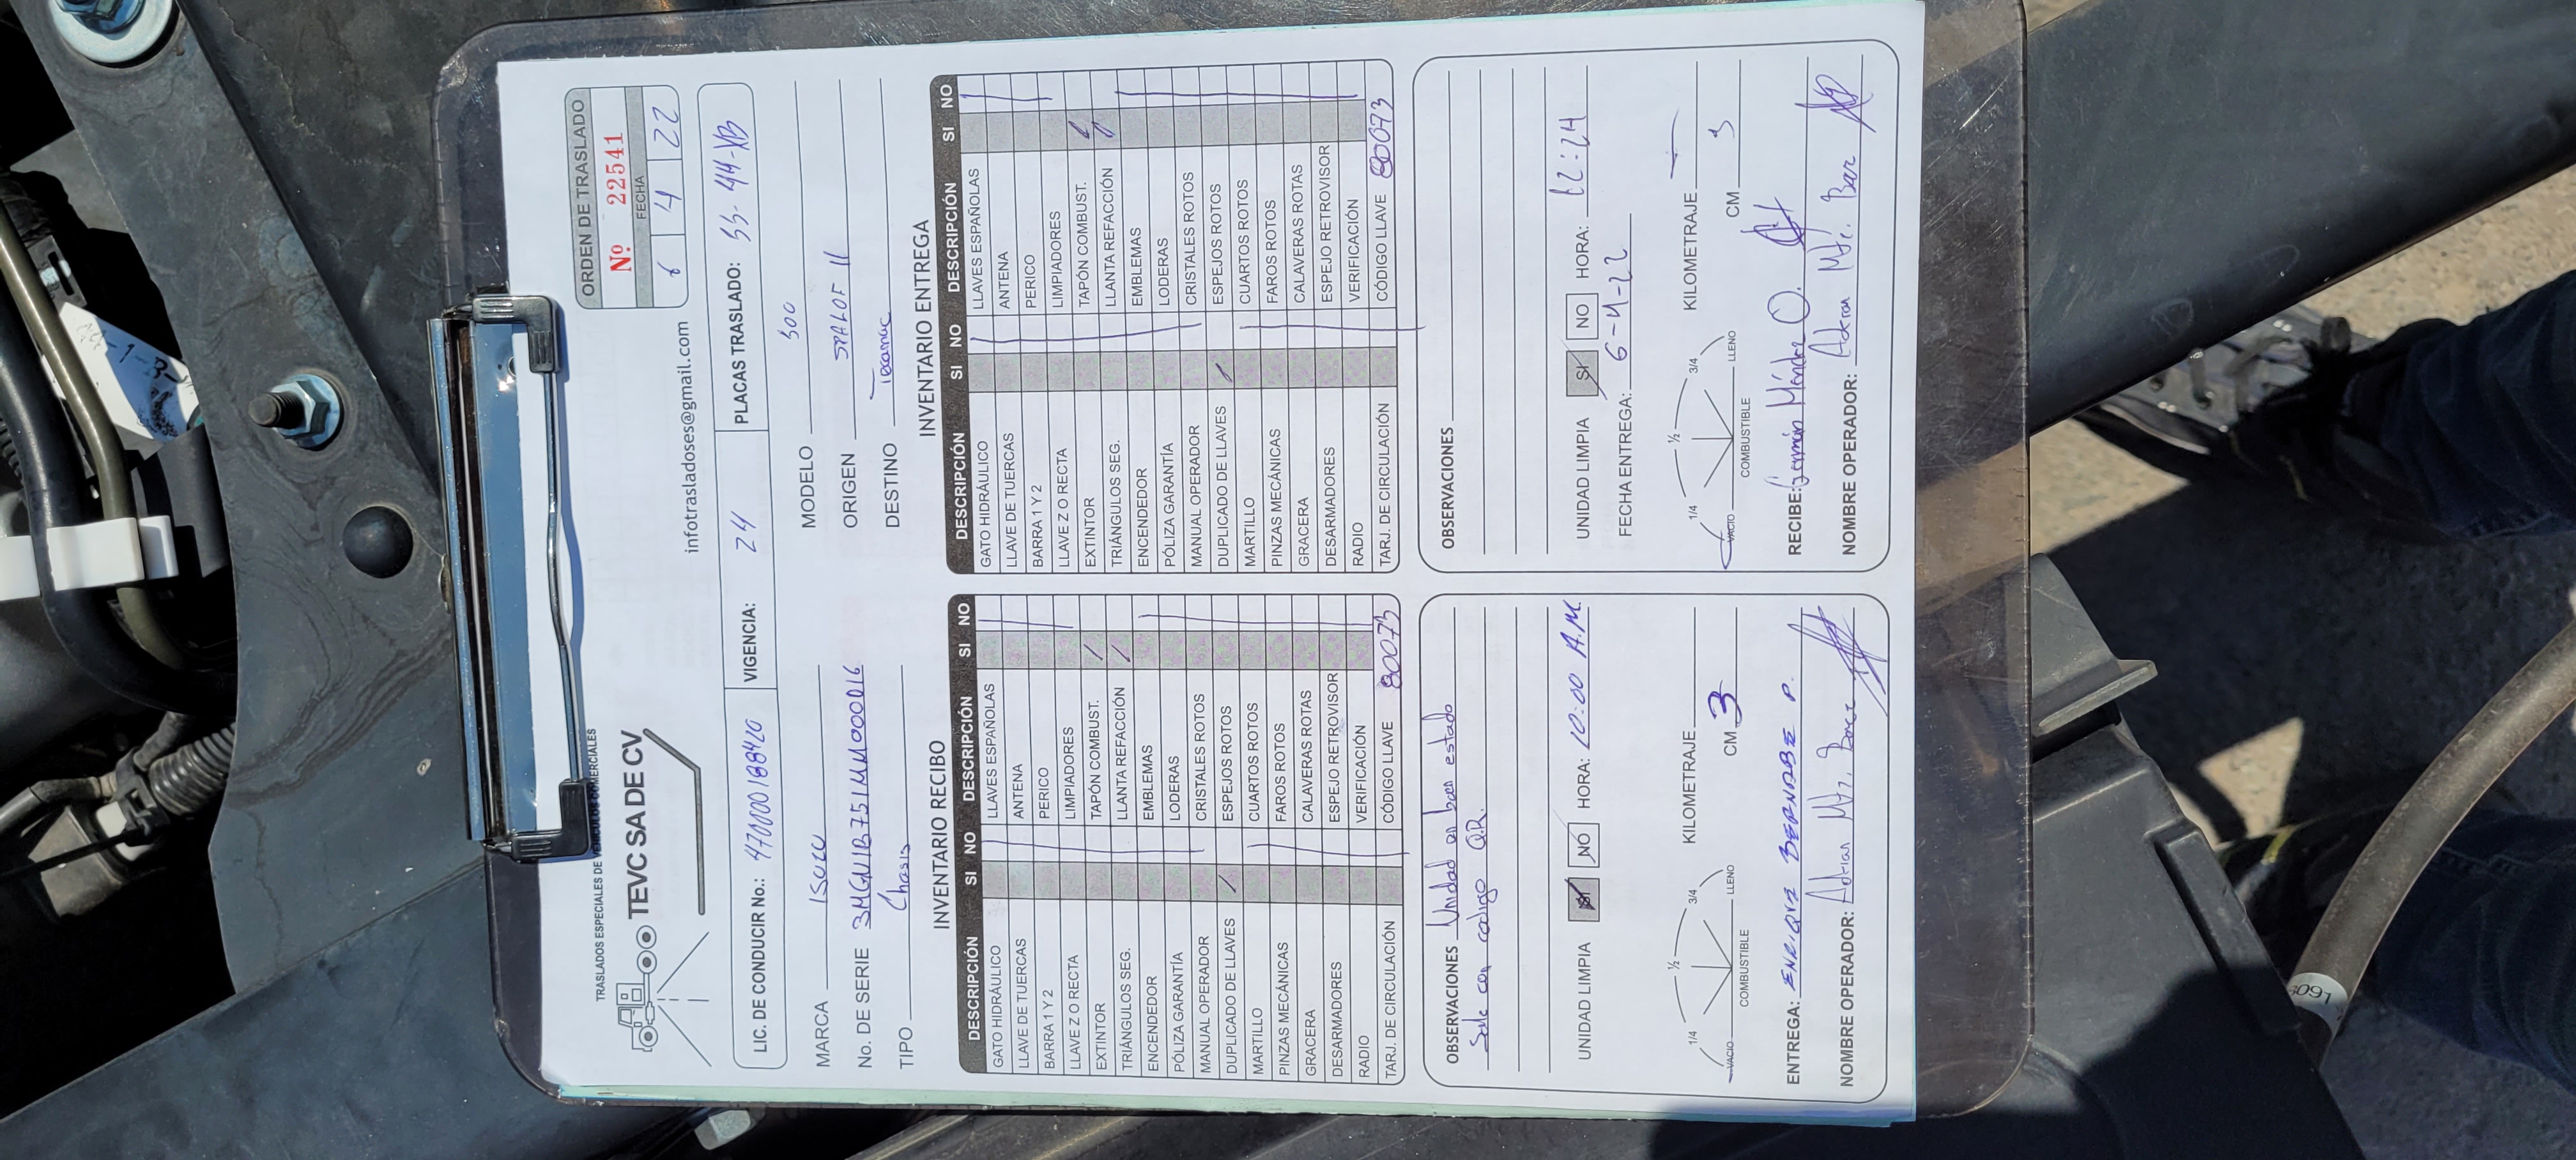 TRASLADOS ESPECIALES DE VEHÍCULOS COMERCIALES
TEVC SA DE CV
infotrasladoses@gmail.com
ORDEN DE TRASLADO
Nº 22541
FECHA
6 4 22
LIC. DE CONDUCIR No.: 4700000188420 VIGENCIA: 24 PLACAS TRASLADO:
MARCA ISUZU MODELO 300
No. DE SERIE 3MGN1B751MM000016 ORIGEN
TIPO Chasis DESTINO Tecamac
INVENTARIO RECIBO
DESCRIPCIÓN SI NO DESCRIPCIÓN SI NO
GATO HIDRÁULICO LLAVES ESPAÑOLAS
LLAVE DE TUERCAS ANTENA
BARRA 1 Y 2 PERICO
LLAVE Z O RECTA LIMPIADORES
EXTINTOR TAPÓN COMBUST.
TRIÁNGULOS SEG. LLANTA REFACCIÓN
ENCENDEDOR EMBLEMAS
PÓLIZA GARANTÍA LODERAS
MANUAL OPERADOR CRISTALES ROTOS
DUPLICADO DE LLAVES ESPEJOS ROTOS
MARTILLO CUARTOS ROTOS
PINZAS MECÁNICAS FAROS ROTOS
GRACERA CALAVERAS ROTAS
DESARMADORES ESPEJO RETROVISOR
RADIO VERIFICACIÓN
TARJ. DE CIRCULACIÓN CÓDIGO LLAVE 80073
INVENTARIO ENTREGA
DESCRIPCIÓN SI NO DESCRIPCIÓN SI NO
GATO HIDRÁULICO LLAVES ESPAÑOLAS
LLAVE DE TUERCAS ANTENA
BARRA 1 Y 2 PERICO
LLAVE Z O RECTA LIMPIADORES
EXTINTOR TAPÓN COMBUST.
TRIÁNGULOS SEG. LLANTA REFACCIÓN
ENCENDEDOR EMBLEMAS
PÓLIZA GARANTÍA LODERAS
MANUAL OPERADOR CRISTALES ROTOS
DUPLICADO DE LLAVES ESPEJOS ROTOS
MARTILLO CUARTOS ROTOS
PINZAS MECÁNICAS FAROS ROTOS
GRACERA CALAVERAS ROTAS
DESARMADORES ESPEJO RETROVISOR
RADIO VERIFICACIÓN
TARJ. DE CIRCULACIÓN CÓDIGO LLAVE 80073
OBSERVACIONES Unidad en buen estado
Sale con codigo QR.
UNIDAD LIMPIA SI NO HORA: 10:00 A.M.
1/4 ½ 3/4 KILOMETRAJE
VACIO LLENO CM 3
COMBUSTIBLE
ENTREGA: ENRIQUE BERNABE P.
NOMBRE OPERADOR: Adrian Mtz.
OBSERVACIONES
UNIDAD LIMPIA SI NO HORA: 12:24
FECHA ENTREGA: 6-4-22
1/4 ½ 3/4 KILOMETRAJE
VACIO LLENO CM 3
COMBUSTIBLE
RECIBE: Germán Méndez O.
NOMBRE OPERADOR: Adrian Mtz. Bar
6091